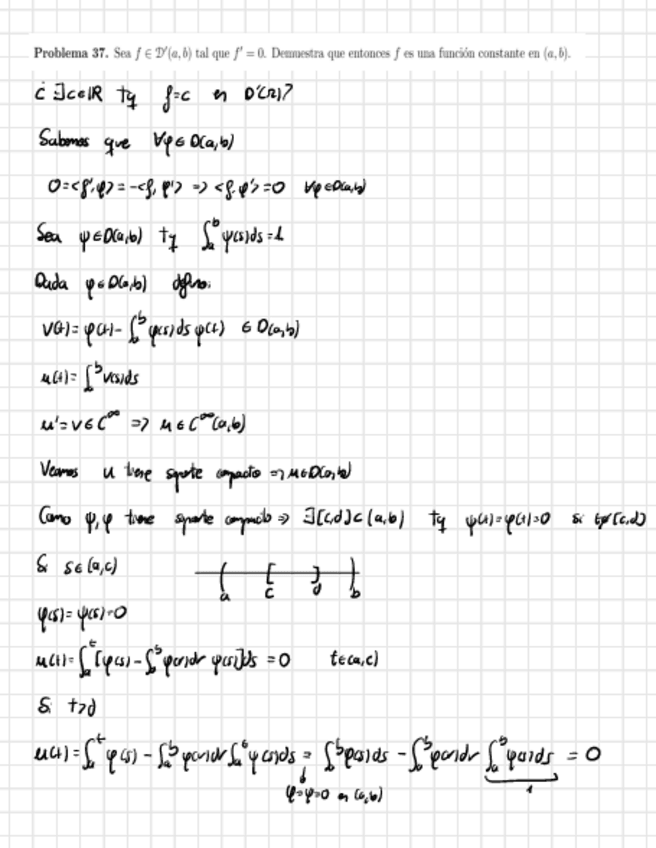 Problema 37. Sea f ∈ D'(a, b) tal que f' = 0. Demuestra que entonces f es una función constante en (a, b).
¿ ∃c∈ℝ tq f=c en D'(Ω)?
Sabemos que ∀φ∈D(a,b)
0=<f',φ>=-<f,φ'> => <f,φ'>=0 ∀φ∈D(a,b)
Sea ψ∈D(a,b) tq ∫_a^b ψ(s)ds=1
Dada φ∈D(a,b) defino:
v(t)=φ(t)-∫_a^b φ(s)ds ψ(t) ∈ D(a,b)
u(t)=∫_a^b v(s)ds
u'=v∈C^∞ => u∈C^∞(a,b)
Veamos u tiene soporte compacto => u∈D(a,b)
Como ψ,φ tiene soporte compacto => ∃[c,d]⊂(a,b) tq ψ(t)=φ(t)=0 si t∉[c,d]
Si s∈(a,c)
a c d b
φ(s)=ψ(s)=0
u(t)=∫_a^t[φ(s)-∫_a^b φ(r)dr ψ(s)]ds =0 t∈(a,c)
Si t>d
u(t)=∫_a^t φ(s)-∫_a^b φ(r)dr ∫_a^t ψ(s)ds = ∫_a^b φ(s)ds - ∫_a^b φ(r)dr ∫_a^b ψ(s)ds = 0
φ=ψ=0 en (d,b) 1